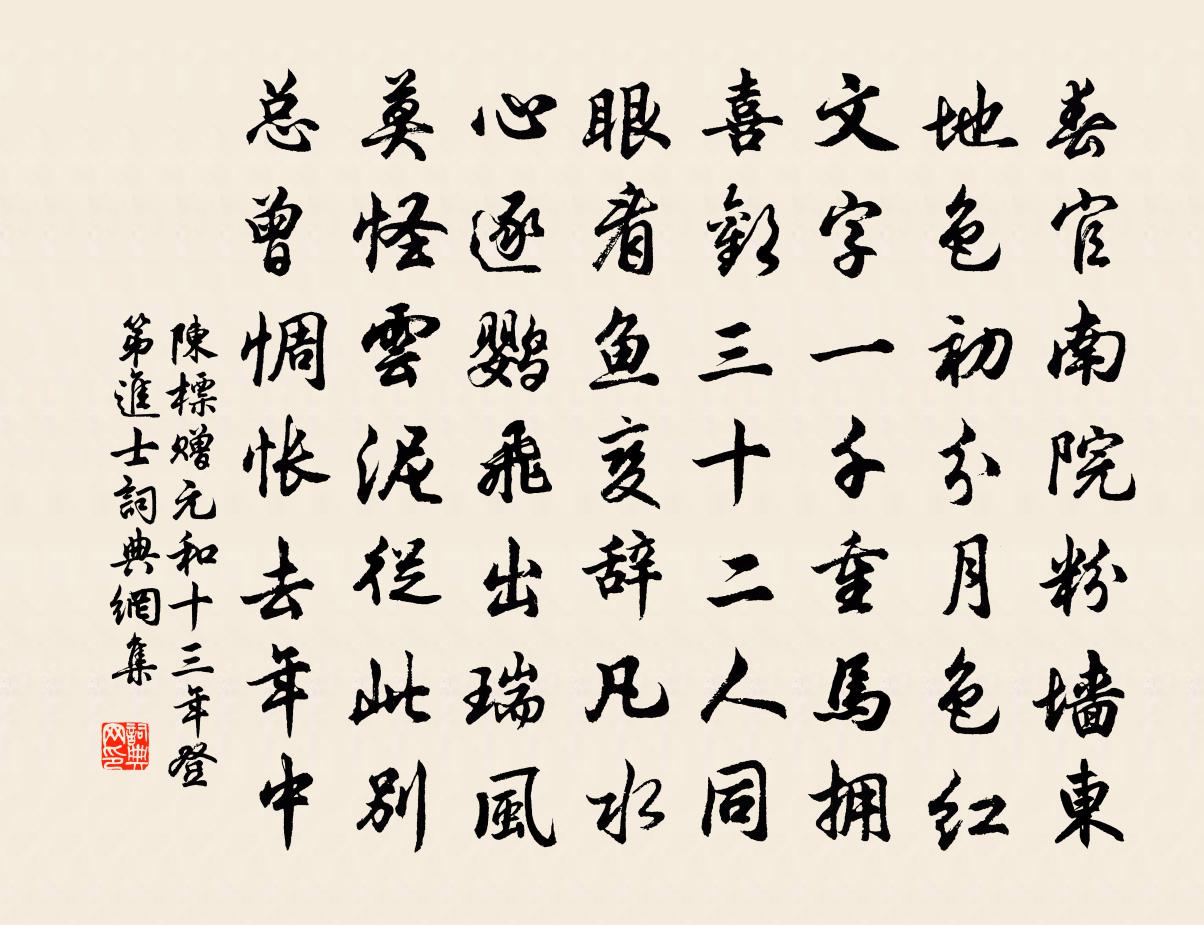 春官南院粉墙東
地色初分月色红
文字一千重馬拥
喜歡三十二人同
眼看鱼变辞凡水
心逐鹦飛出瑞風
莫怪雲泥從此别
总曾惆怅去年中
陳標赠元和十三年登
第進士詞典網集
詞典
网印